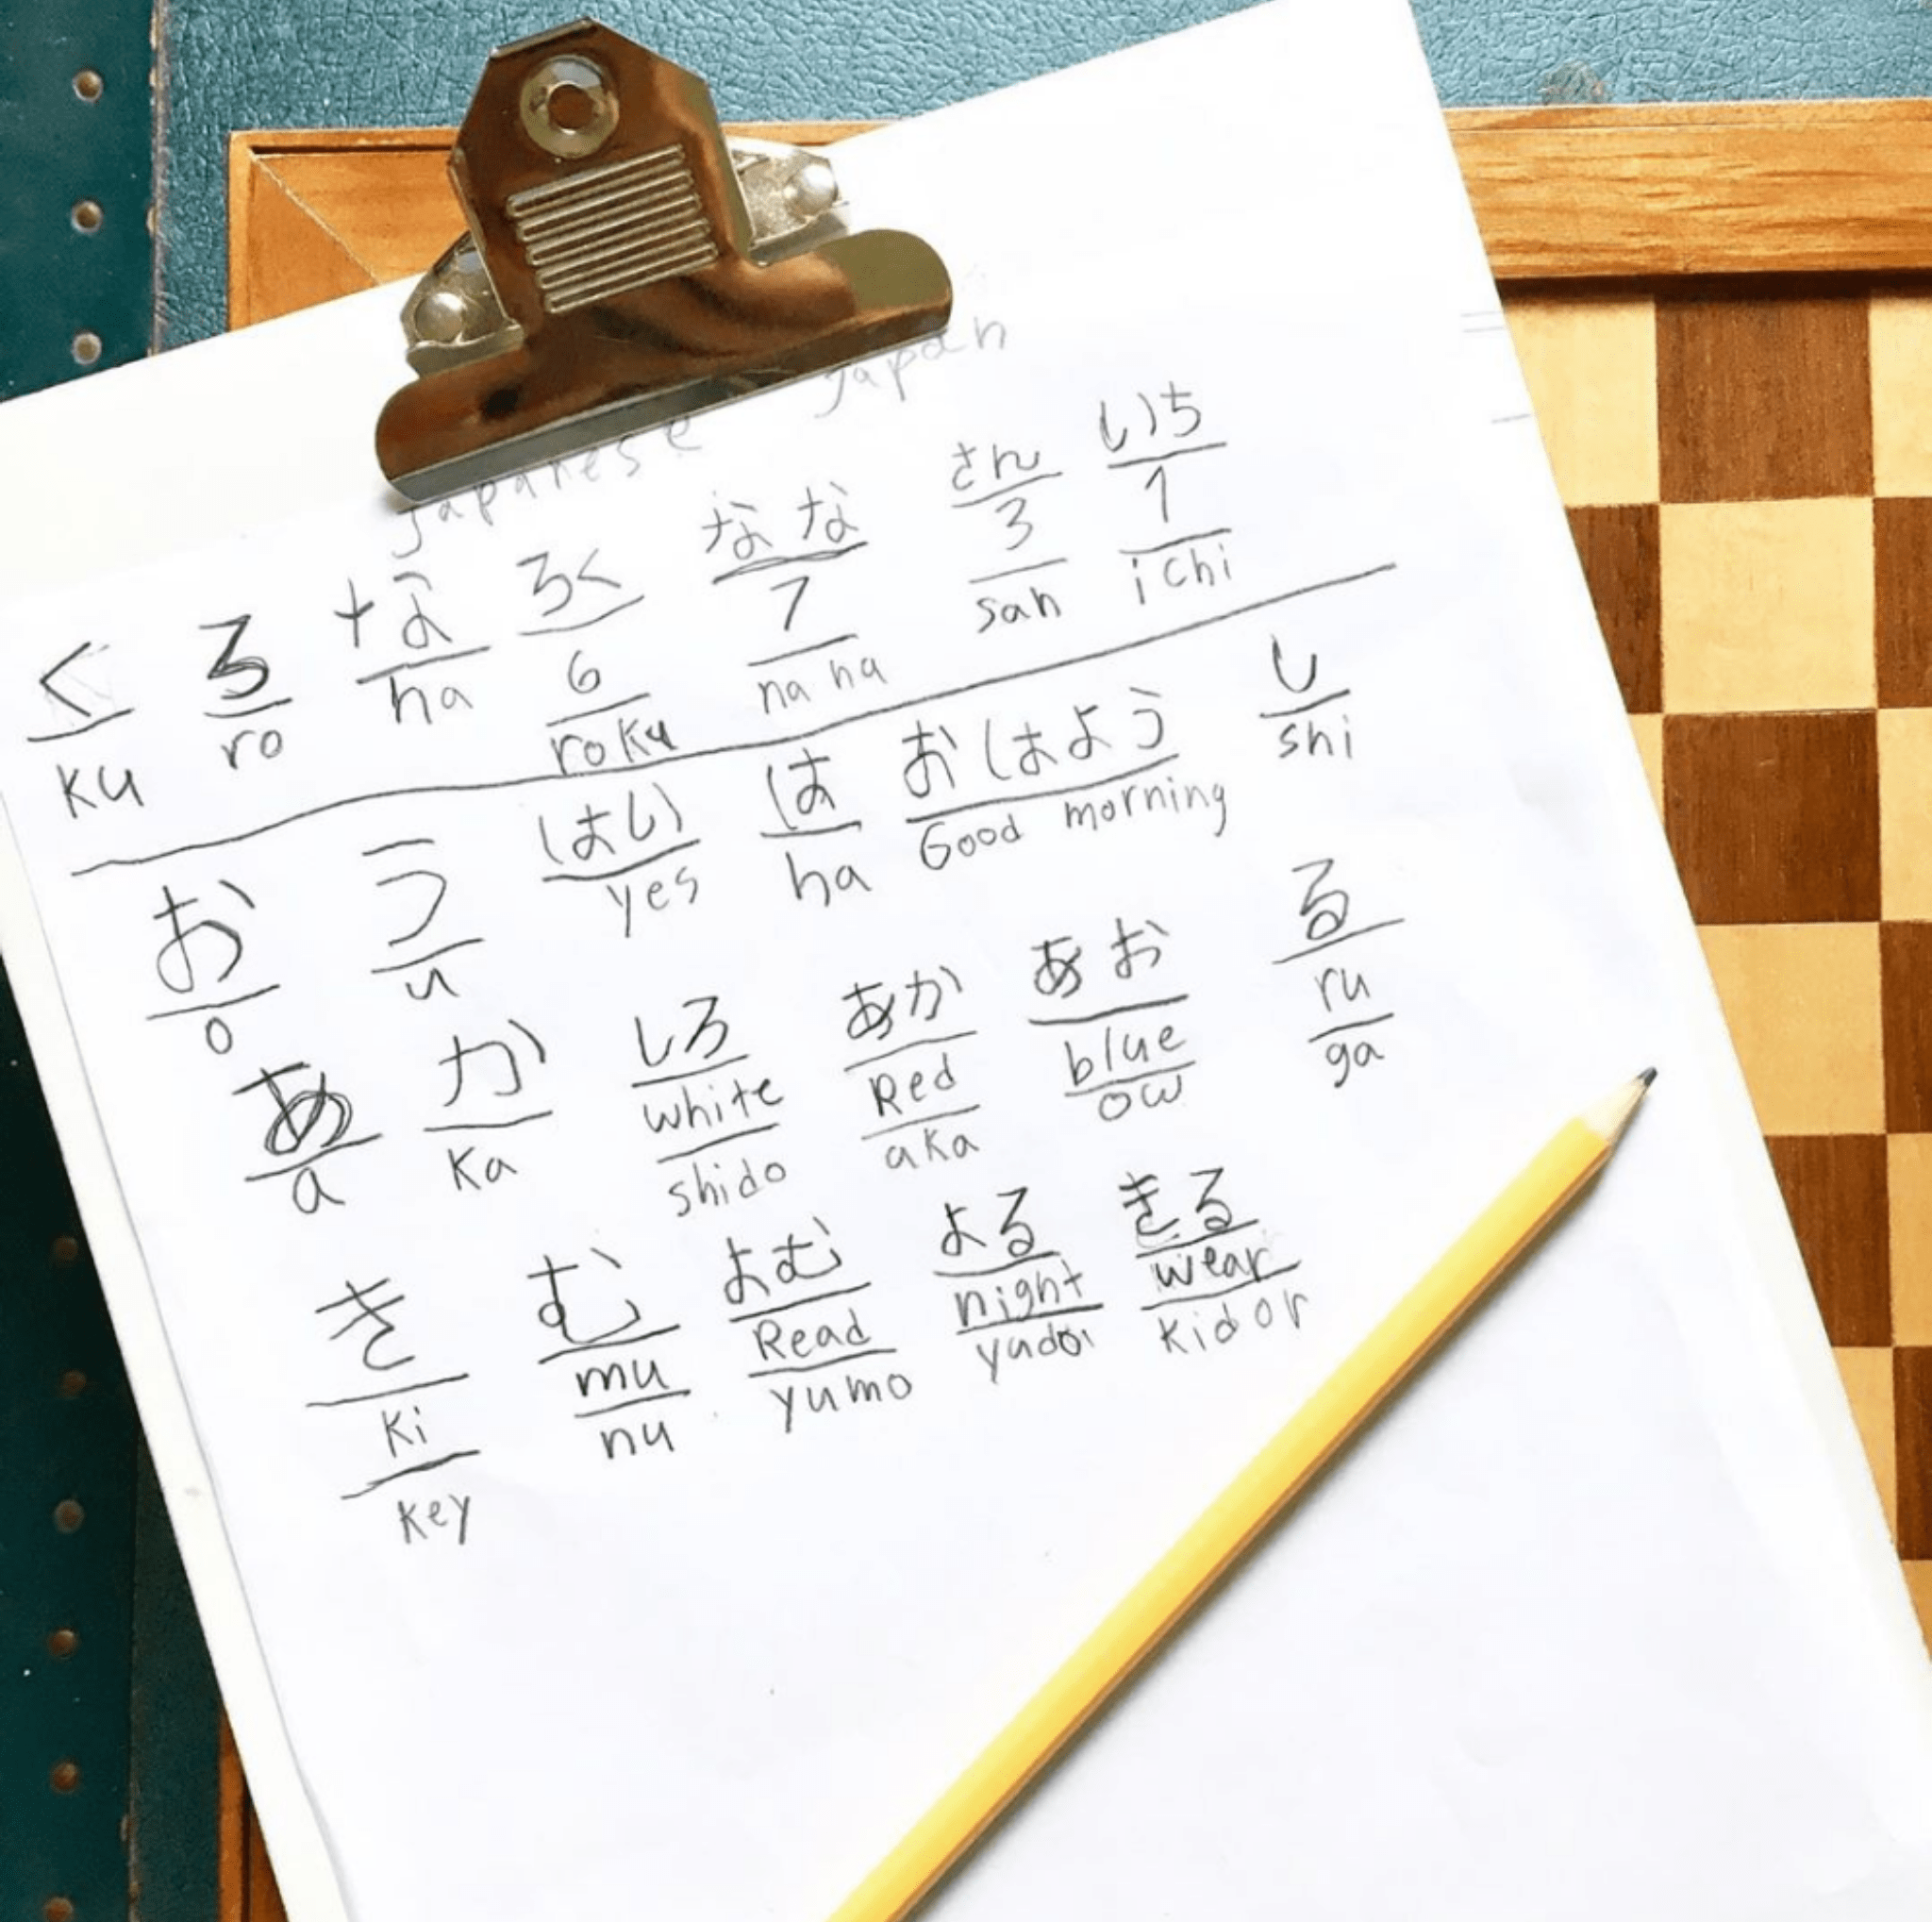 Japanese Japan
く ろ な ろく なな さん いち
6 7 3 1
ku ro na roku nana san ichi
お う はい は おはよう し
o u yes ha Good morning shi
あ か しろ あか あお る
a ka white Red blue ru
shido aka ow ga
き む よむ よる きる
ki mu Read night wear
key nu yumo yador kidor